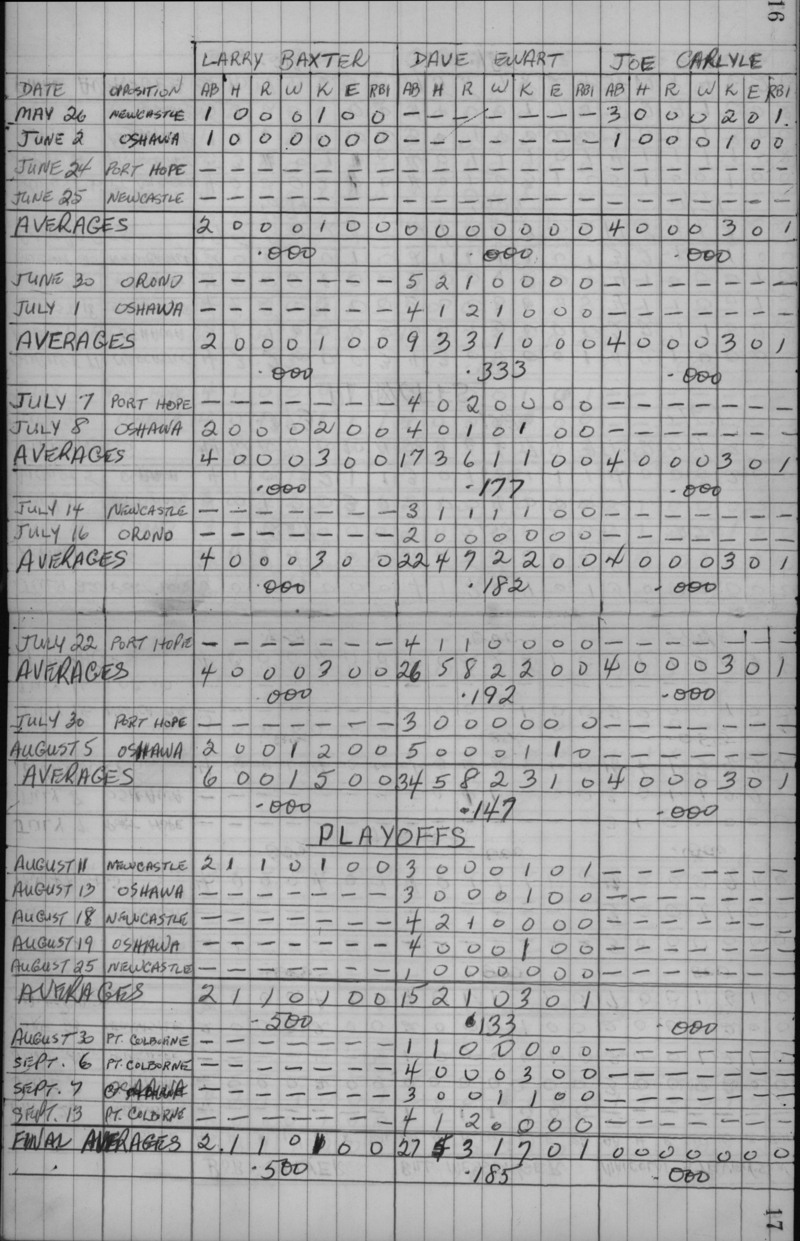 16
LARRY BAXTER DAVE EWART JOE CARLYLE
DATE OPOSITION AB H R W K E RBI AB H R W K E RBI AB H R W K E RBI
MAY 26 NEWCASTLE 1 0 0 0 1 0 0 – – – – – – – 3 0 0 0 2 0 1
JUNE 2 OSHAWA 1 0 0 0 0 0 0 – – – – – – – 1 0 0 0 1 0 0
JUNE 24 PORT HOPE – – – – – – – – – – – – – – – – – – – – –
JUNE 25 NEWCASTLE – – – – – – – – – – – – – – – – – – – – –
AVERAGES 2 0 0 0 1 0 0 0 0 0 0 0 0 0 4 0 0 0 3 0 1
.000 .000 .000
JUNE 30 ORONO – – – – – – – 5 2 1 0 0 0 0 – – – – – – –
JULY 1 OSHAWA – – – – – – – 4 1 2 1 0 0 0 – – – – – – –
AVERAGES 2 0 0 0 1 0 0 9 3 3 1 0 0 0 4 0 0 0 3 0 1
.000 .333 .000
JULY 7 PORT HOPE – – – – – – – 4 0 2 0 0 0 0 – – – – – – –
JULY 8 OSHAWA 2 0 0 0 2 0 0 4 0 1 0 1 0 0 – – – – – – –
AVERAGES 4 0 0 0 3 0 0 17 3 6 1 1 0 0 4 0 0 0 3 0 1
.000 .177 .000
JULY 14 NEWCASTLE – – – – – – – 3 1 1 1 1 0 0 – – – – – – –
JULY 16 ORONO – – – – – – – 2 0 0 0 0 0 0 – – – – – – –
AVERAGES 4 0 0 0 3 0 0 22 4 7 2 2 0 0 4 0 0 0 3 0 1
.000 .182 .000
JULY 22 PORT HOPE – – – – – – – 4 1 1 0 0 0 0 – – – – – – –
AVERAGES 4 0 0 0 3 0 0 26 5 8 2 2 0 0 4 0 0 0 3 0 1
.000 .192 .000
JULY 30 PORT HOPE – – – – – – – 3 0 0 0 0 0 0 – – – – – – –
AUGUST 5 OSHAWA 2 0 0 1 2 0 0 5 0 0 0 1 1 0 – – – – – – –
AVERAGES 6 0 0 1 5 0 0 34 5 8 2 3 1 0 4 0 0 0 3 0 1
.000 .147 .000
PLAYOFFS
AUGUST 11 NEWCASTLE 2 1 1 0 1 0 0 3 0 0 0 1 0 1 – – – – – – –
AUGUST 13 OSHAWA – – – – – – – 3 0 0 0 1 0 0 – – – – – – –
AUGUST 18 NEWCASTLE – – – – – – – 4 2 1 0 0 0 0 – – – – – – –
AUGUST 19 OSHAWA – – – – – – – 4 0 0 0 1 0 0 – – – – – – –
AUGUST 25 NEWCASTLE – – – – – – – 1 0 0 0 0 0 0 – – – – – – –
AVERAGES 2 1 1 0 1 0 0 15 2 1 0 3 0 1 – – – – – – –
.500 .133 .000
AUGUST 30 PT. COLBORNE – – – – – – – 1 1 0 0 0 0 0 – – – – – – –
SEPT. 6 PT. COLBORNE – – – – – – – 4 0 0 0 3 0 0 – – – – – – –
SEPT. 7 – – – – – – – 3 0 0 1 1 0 0 – – – – – – –
SEPT. 13 PT. COLBRNE – – – – – – – 4 1 2 0 0 0 0 – – – – – – –
FINAL AVERAGES 2 1 1 0 1 0 0 27 3 1 7 0 1 0 0 0 0 0 0 0
.500 .185 .000
17